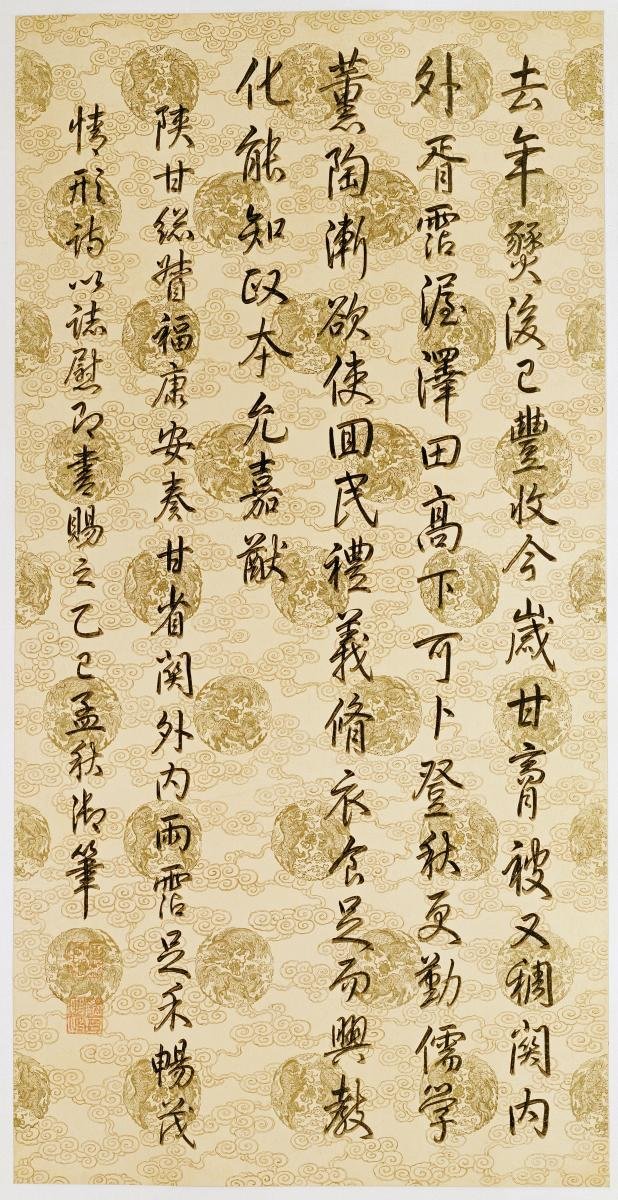 去年燹後已豐收今歲甘膏被又稠関內
外胥霑渥澤田高下可卜登秋更勤儒学
薰陶漸欲使囬民禮義脩衣食足而興教
化能知政本允嘉猷
陝甘総督福康安奏甘省関外內雨霑足禾暢茂
情形詩以誌慰即書賜之乙巳孟秋御筆